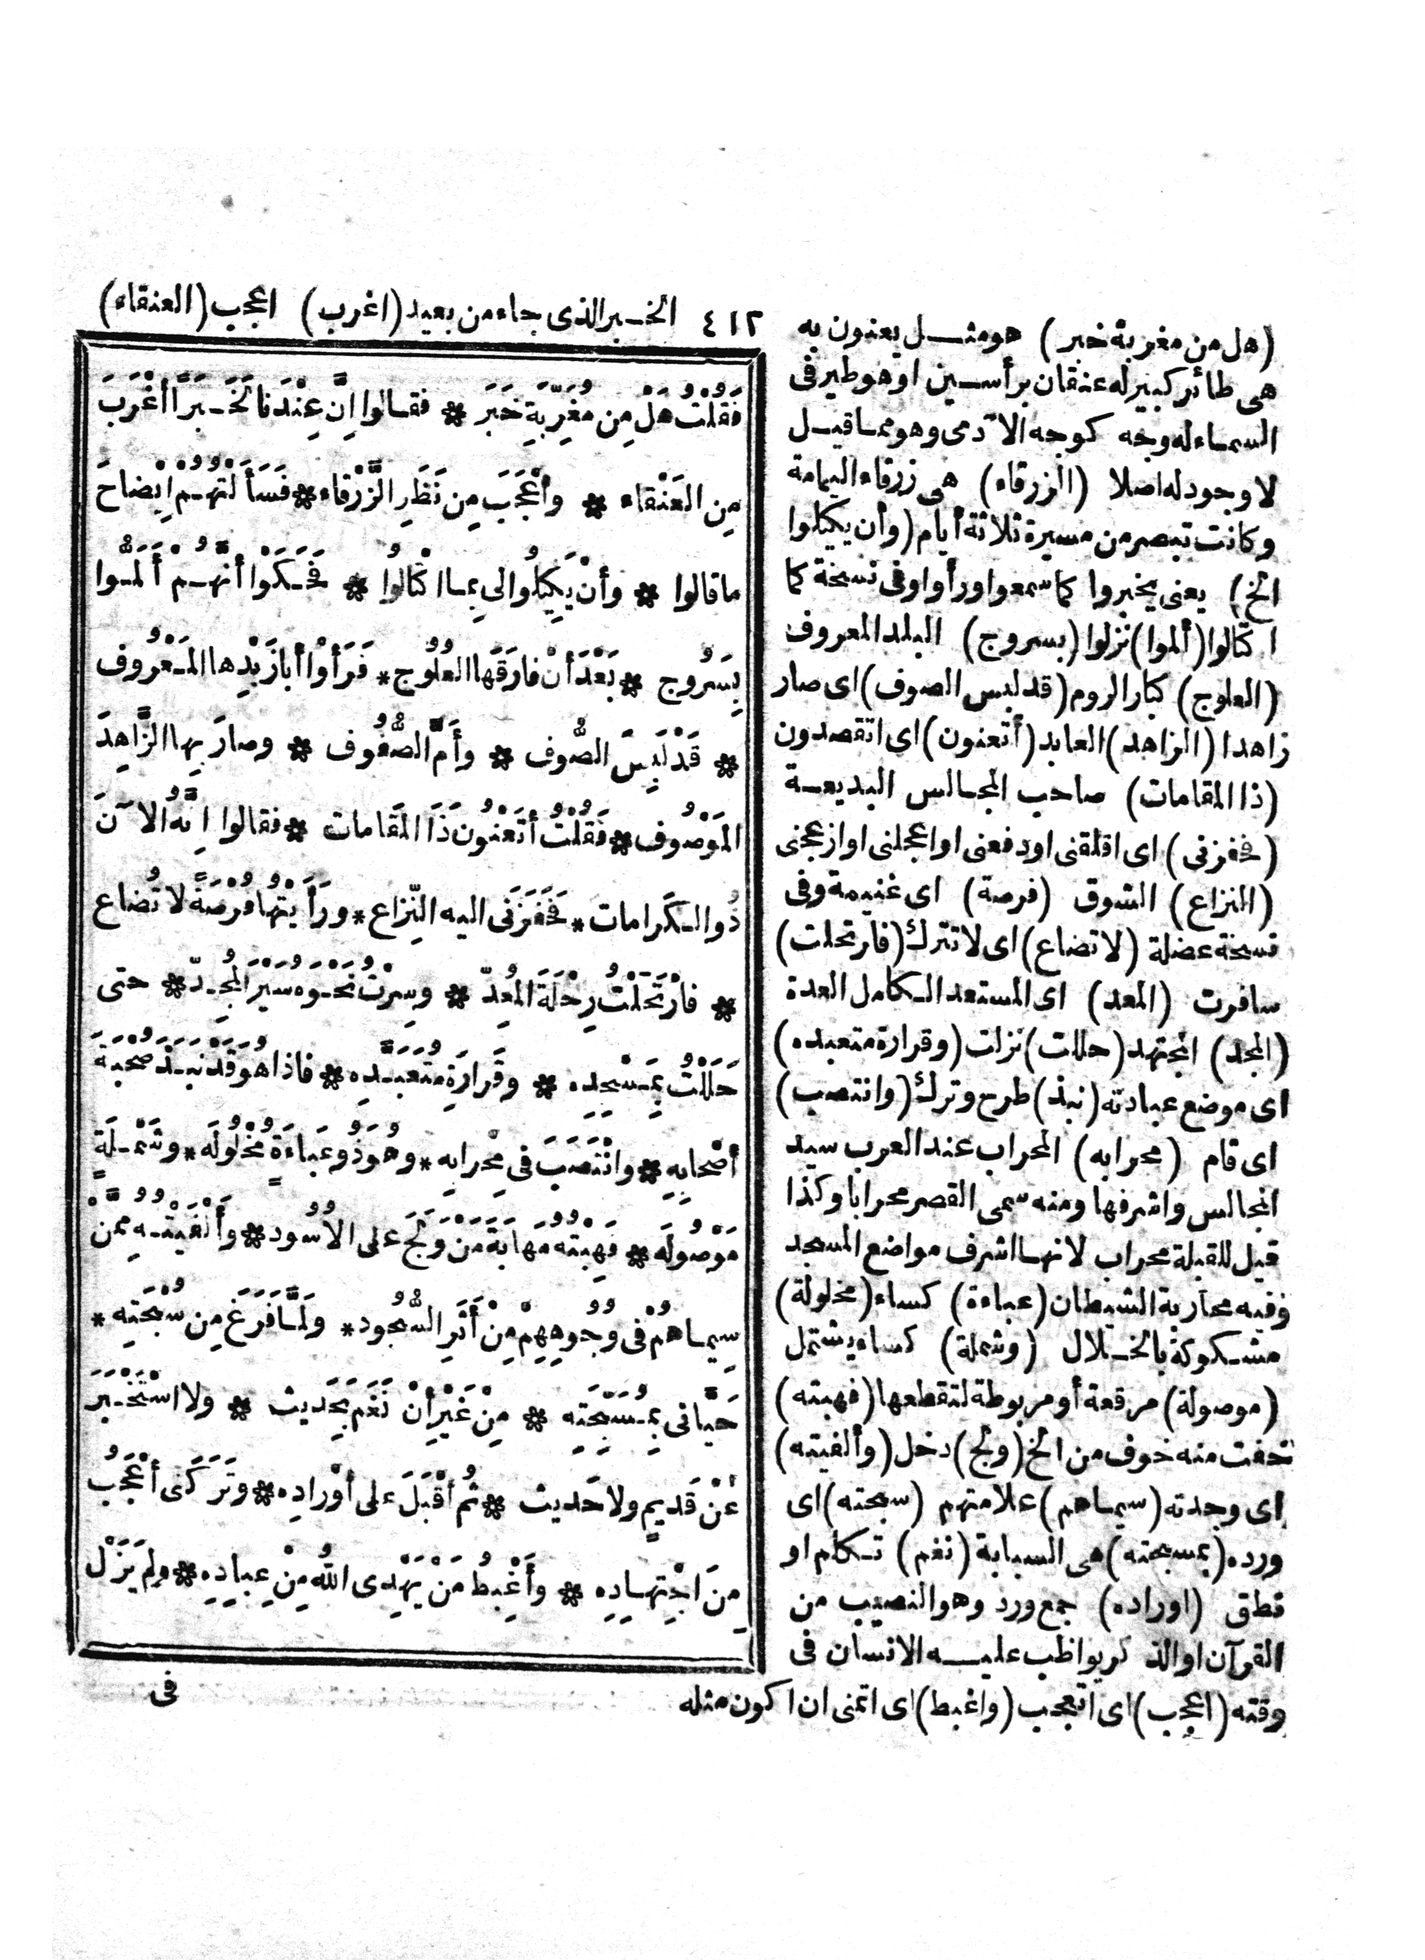 ٤١٢
(هل من مغربة خبر) هو مثل يعنون به
الخبر الذى جاء من بعيد (اغرب) اعجب (العنقاء)
هى طائر كبير له عنقان برأسين او هو طير فى
السماء له وجه كوجه الآدمى وهو مما قيل
لا وجود له اصلا (الزرقاء) هى زرقاء اليمامة
وكانت تبصر من مسيرة ثلاثة أيام (وأن يكيلوا
الخ) يعنى يخبروا كما سمعوا ورأوا وفى نسخة كما
اكتالوا (ألموا) نزلوا (بسروج) البلد المعروف
(العلوج) كبار الروم (قد لبس الصوف) اى صار
زاهدا (الزاهد) العابد (أتعنون) اى اتقصدون
(ذا المقامات) صاحب المجالس البديعة
(فحفزنى) اى اقلقنى او دفعنى او اعجلنى او ازعجنى
(النزاع) الشوق (فرصة) اى غنيمة وفى
نسخة عضلة (لا تضاع) اى لا تترك (فارتحلت)
سافرت (المعد) اى المستعد الكامل العدة
(المجد) المجتهد (حللت) نزلت (وقرارة متعبده)
اى موضع عبادته (نبذ) طرح وترك (وانتصب)
اى قام (محرابه) المحراب عند العرب سيد
المجالس واشرفها ومنه سمى القصر محرابا وكذا
قيل للقبلة محراب لانها اشرف مواضع المسجد
وفيه محاربة الشيطان (عباءة) كساء (مخلولة)
مشكوكة بالخلال (وشملة) كساء يشتمل
(موصولة) مرقعة أو مربوطة لتقطعها (فهبته)
تخفت منه خوف من الخ (ولج) دخل (وألفيته)
اى وجدته (سيماهم) علامتهم (سبحته) اى
ورده (بمسبحته) هى السبابة (نغم) تكلم او
نطق (اوراده) جمع ورد وهو النصيب من
القرآن او الذكر يواظب عليه الانسان فى
وقته (اعجب) اى اتعجب (واغبط) اى اتمنى ان اكون مثله
فَقُلْتُ هَلْ مِن مُغَرِّبَةِ خَبَر * فقالوا اِنَّ عِنْدَنا لَخَبَرًا أغْرَبَ
مِن العَنْقاء * وأعْجَبَ مِن نَظَرِ الزَّرْقاء * فَسَأَلْتُهُمْ اِيْضاحَ
ما قالوا * وأنْ يَكِيلُوا لى بِما اكْتالُوا * فَحَكَوْا أنَّهُمْ أَلَمُّوا
بِسَرُوج * بَعْدَ أنْ فارَقَها العُلُوج * فَرَأَوْا أبا زَيْدِها المَعْرُوف
* قَدْ لَبِسَ الصُّوف * وأَمَّ الصُّفُوف * وصارَ بِها الزَّاهِدَ
المَوْصُوف * فَقُلْتُ أتَعْنُونَ ذَا المَقَامات * فقالوا اِنَّهُ الآنَ
ذُو الكَرامات * فَحَفَزَنى اليه النِّزاع * ورَأَيْتُها فُرْصَةً لا تُضاع
* فارْتَحَلْتُ رِحْلَةَ المُعِدّ * وسِرْتُ نَحْوَهُ سَيْرَ المُجِدّ * حتى
حَلَلْتُ بِمَسْجِدِه * وقَرارَةِ مُتَعَبَّدِه * فاذا هُوَ قَدْ نَبَذَ صُحْبَةَ
أصْحابِهِ * وانْتَصَبَ فى مِحْرابِه * وهُوَ ذُو عَبَاءَةٍ مَخْلُولَه * وشَمْلَةٍ
مَوْصُولَه * فَهِبْتُه مَهابَةَ مَنْ وَلَجَ على الأُسُود * وأَلْفَيْتُه مِمَّنْ
سِيماهُمْ فى وُجُوهِهِمْ مِنْ أَثَرِ السُّجُود * ولَمَّا فَرَغَ مِن سُبْحَتِه *
حَيَّانى بِمُسَبِّحَتِه * مِنْ غَيْرِ أنْ نَغَمَ بِحَديث * ولا اسْتَخْبَرَ
عَنْ قَديمٍ ولا حَديث * ثُمَّ أقْبَلَ على أوْرادِه * وتَرَكَنى أعْجَبُ
مِنَ اجْتِهادِه * وأَغْبِطُ مَنْ يَهْدِى اللهُ مِنْ عِبادِه * ولم يَزَلْ
فى